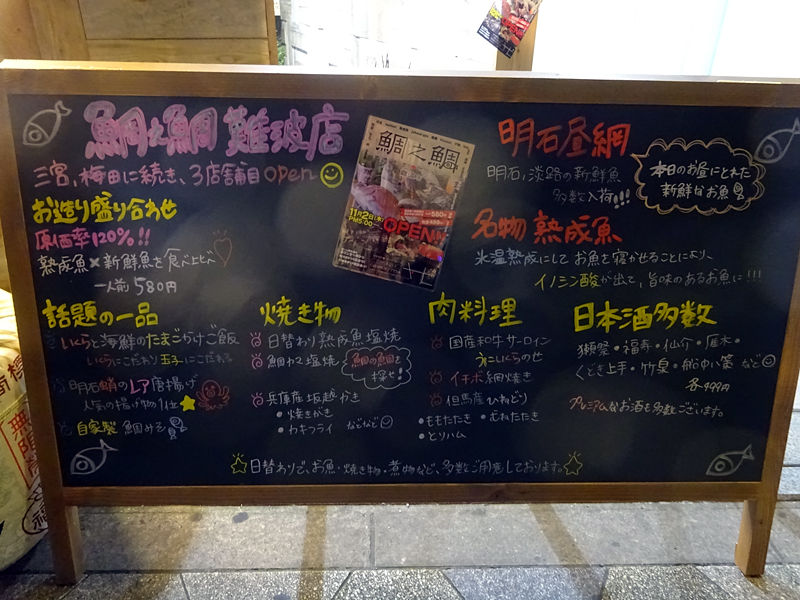 鯛之鯛 難波店
三宮、梅田に続き、3店舗目open
お造り盛り合わせ
原価率120%!!
熟成魚×新鮮魚を食べ比べ
一人前 580円
鯛之鯛
11月2日
PM5:00
OPEN
明石昼網
明石、淡路の新鮮魚
多数入荷!!!
本日のお昼にとれた
新鮮なお魚
名物 熟成魚
氷温熟成にしてお魚を寝かせることにより、
イノシン酸が出て、旨味のあるお魚に!!!
話題の一品
いくらと海鮮のたまごかけご飯
いくらにこだわり玉子にこだわる
明石蛸のレア唐揚げ
人気の揚げ物1位
自家製 鯛みそ
焼き物
日替わり熟成魚塩焼
鯛カマ塩焼
鯛の鯛を
探そ!
兵庫産坂越かき
・焼きがき
・カキフライ などなど
肉料理
国産和牛サーロイン
うにいくらのせ
イチボ網焼き
但馬産ひねどり
・ももたたき ・むねたたき
・とりハム
日本酒多数
獺祭・福寿・仙介・雁木・
くどき上手・竹泉・船中八策 など
各499円
プレミアムなお酒も多数ございます。
日替わりで、お魚・焼き物・煮物など、多数ご用意しております。